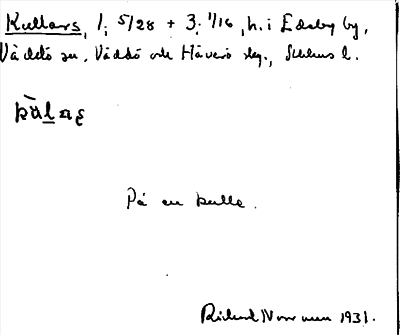 Kullars, 1: 5/28 + 3: 1/16, h. i Edsby by,
Väddö sn, Väddö och Häverö skg., Sthlms l.
På en kulle.
Rickard Norrman 1931.